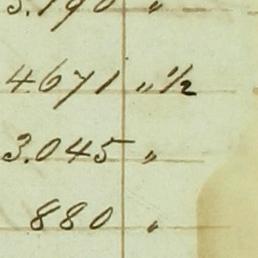 3.190 "
4671 " 1/2
3.045 "
880 "